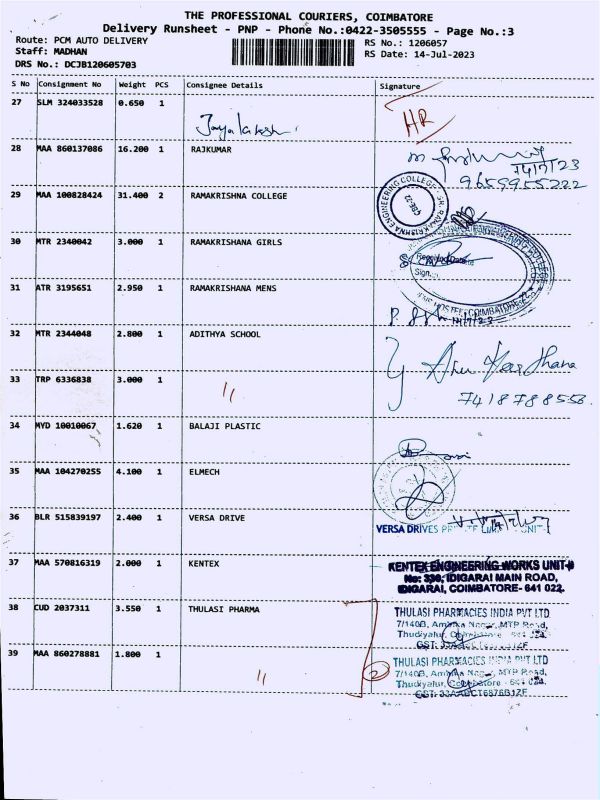 THE PROFESSIONAL COURIERS, COIMBATORE
Delivery Runsheet - PNP - Phone No.:0422-3505555 - Page No.:3
Route: PCM AUTO DELIVERY
RS No.: 1206057
Staff: MADHAN
RS Date: 14-Jul-2023
DRS No.: DCJB120605703
S No Consignment No Weight PCS Consignee Details Signature
27 SLM 324033528 0.650 1
HR
28 MAA 860137086 16.200 1 RAJKUMAR
14/7/23
9659955222
29 MAA 100828424 31.400 2 RAMAKRISHNA COLLEGE
ENGINEERING COLLEGE
CBE-22
30 MTR 2340042 3.000 1 RAMAKRISHANA GIRLS
Sign.
31 ATR 3195651 2.950 1 RAMAKRISHANA MENS
COIMBATORE
14/7/23
32 MTR 2344048 2.800 1 ADITHYA SCHOOL
33 TRP 6336838 3.000 1 "
7418788558
34 MYD 10010067 1.620 1 BALAJI PLASTIC
35 MAA 104270255 4.100 1 ELMECH
36 BLR 515839197 2.400 1 VERSA DRIVE
VERSA DRIVES
37 MAA 570816319 2.000 1 KENTEX
KENTEX ENGINEERING WORKS UNIT-II
No: 330, IDIGARAI MAIN ROAD,
IDIGARAI, COIMBATORE- 641 022.
38 CUD 2037311 3.550 1 THULASI PHARMA
THULASI PHARMACIES INDIA PVT LTD
7/140B, Ambika Nagar, MTP Road,
Thudiyalur, Coimbatore - 641 034.
39 MAA 860278881 1.800 1 "
2
THULASI PHARMACIES INDIA PVT LTD
7/140B, Ambika Nagar, MTP Road,
Thudiyalur, Coimbatore - 641 034.
GST: 33AABCT6876B1ZF